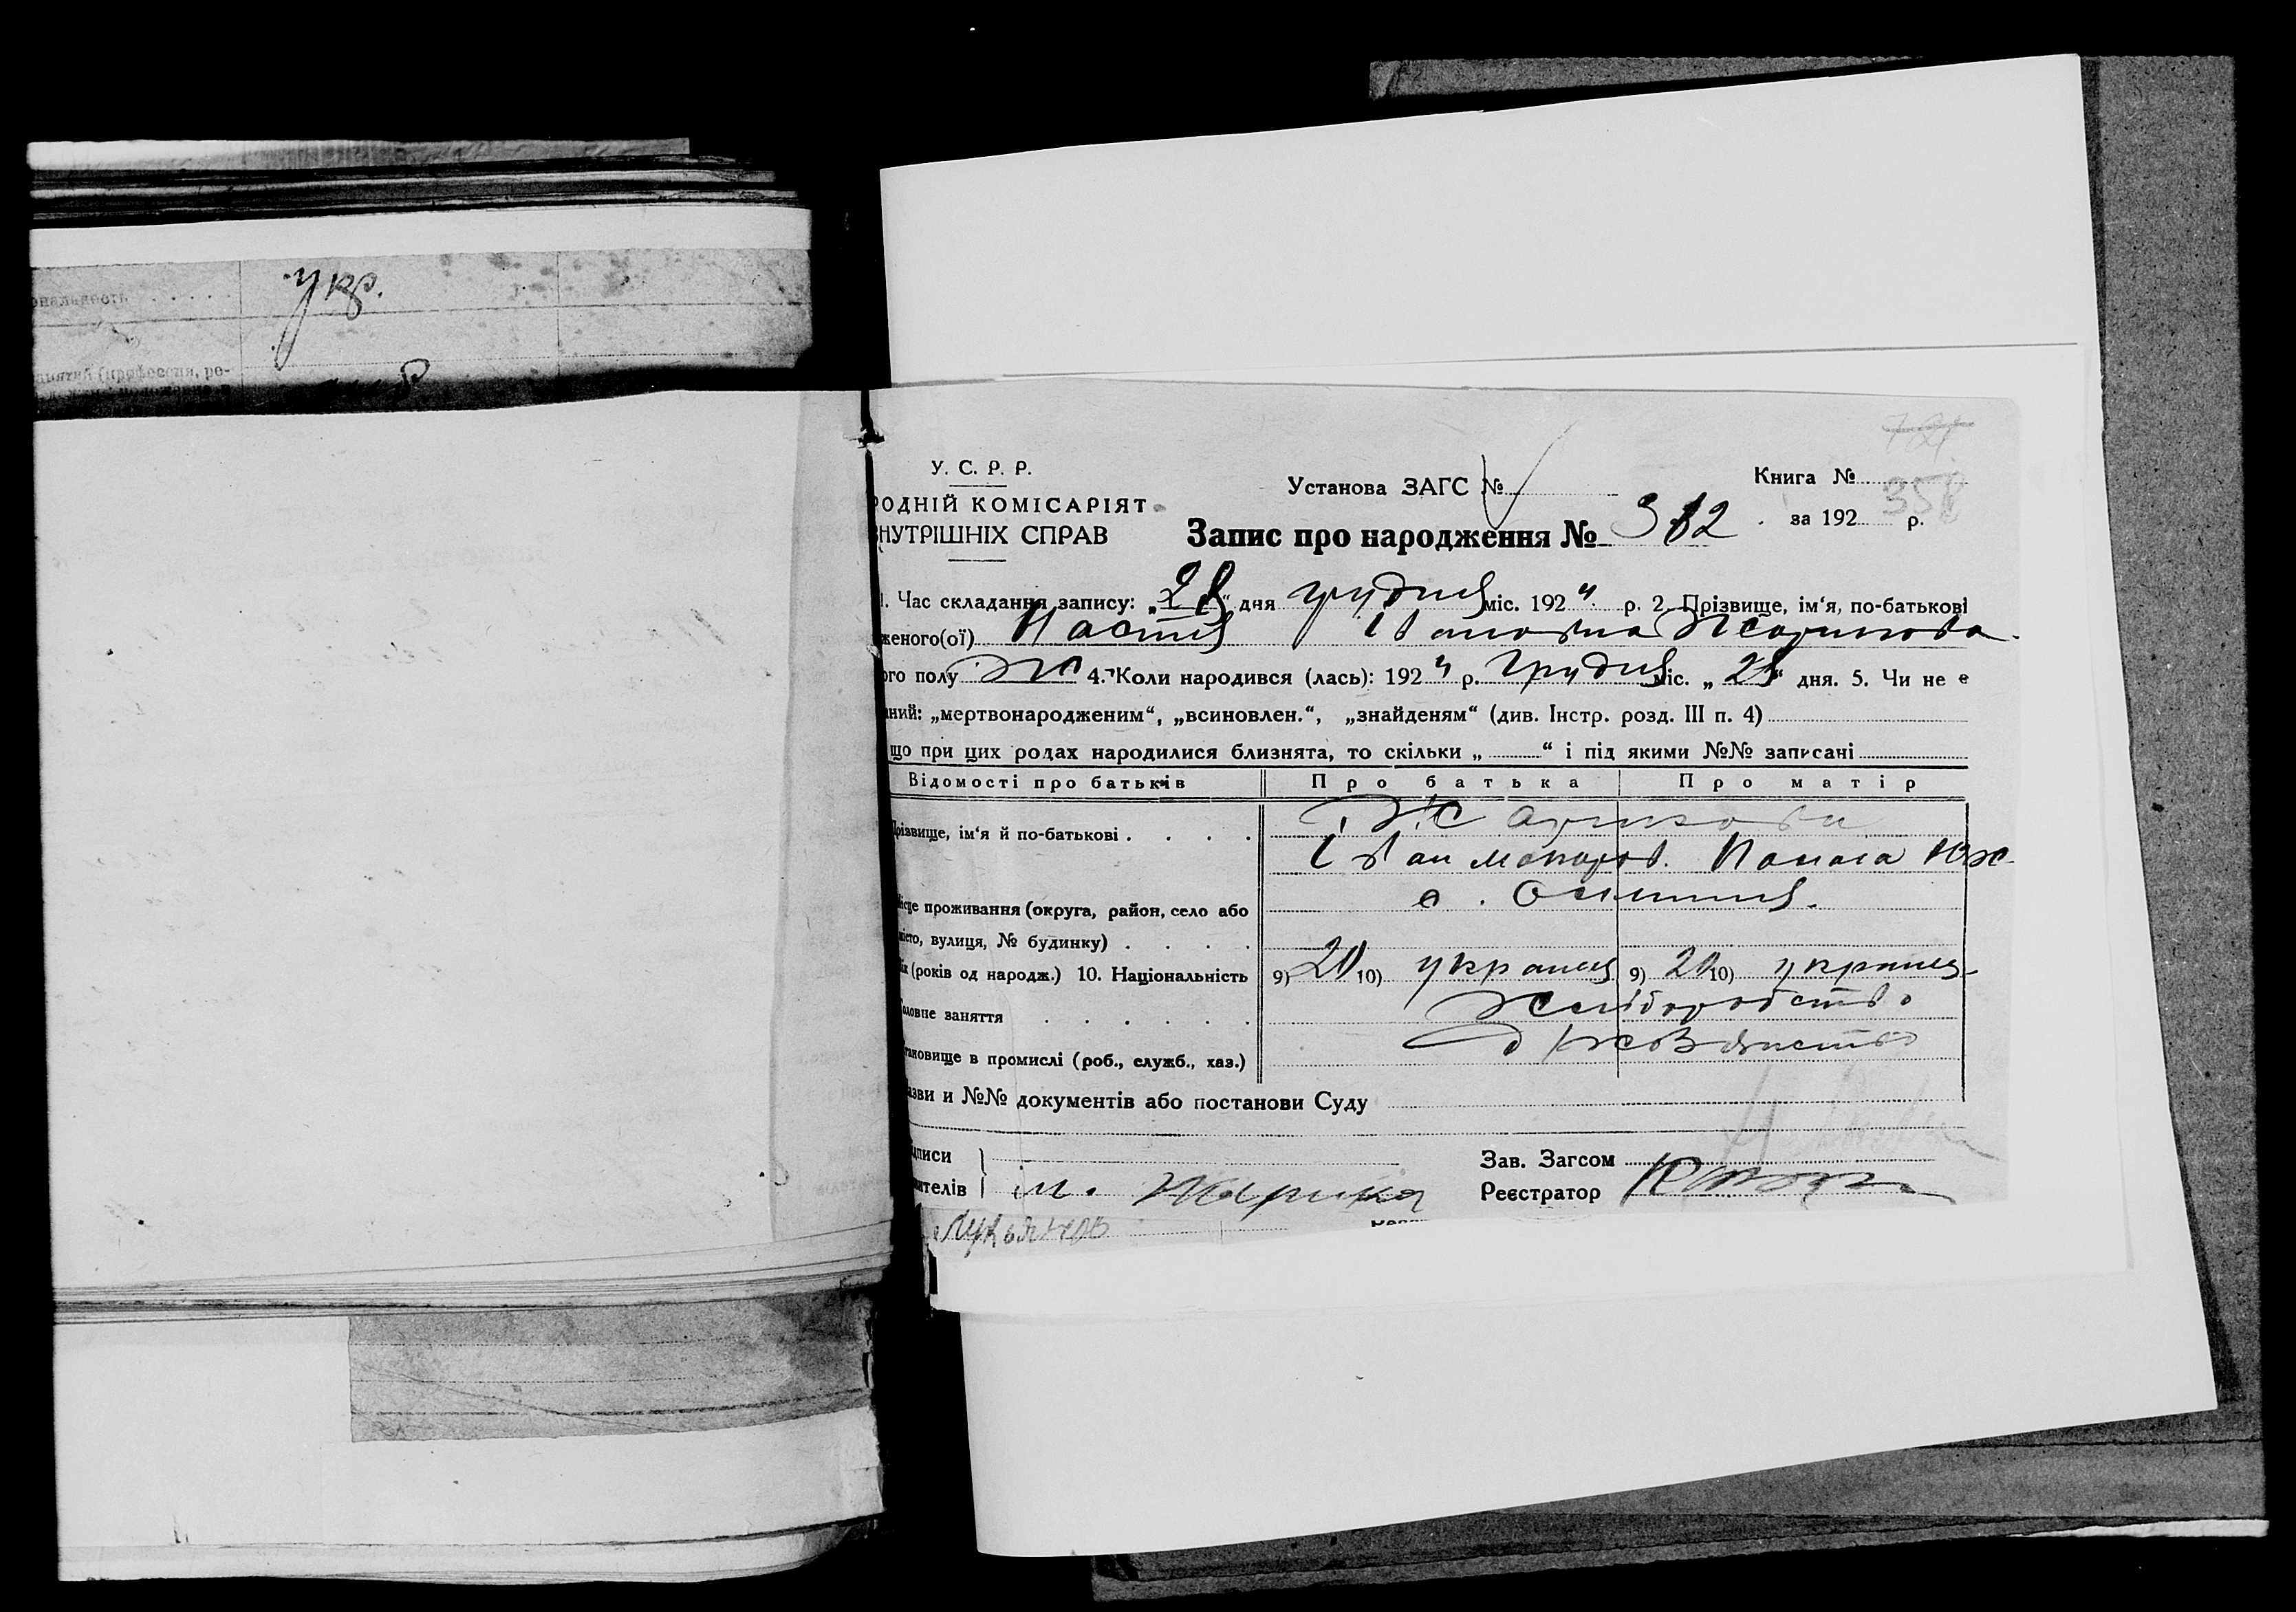 укр.
ональность . . . . .
анятий (профессия, ре-
У. С. Р. Р.
РОДНІЙ КОМІСАРІЯТ
ВНУТРІШНІХ СПРАВ
Установа ЗАГС №
Книга №
721
358
за 192 р.
Запис про народження № 382
1. Час складання запису: „28“ дня грудня міс. 1924 р. 2. Прізвище, ім‘я, по-батькові
женого(ої) Настя Івановна Жарикова
ого полу Ж 4. Коли народився (лась): 1924 р. Грудня міс. „28“ дня. 5. Чи не е
ний: „мертвонародженим“, „всиновлен.“, „знайденям“ (див. Інстр. розд. III п. 4)
що при цих родах народилися близнята, то скільки „ “ і під якими №№ записані
Відомості про батьків Про батька Про матір
Прізвище, ім‘я й по-батькові . . . . Жарикови
Іван Макаров.
Місце проживання (округа, район, село або с.
місто, вулиця, № будинку) . . . .
Вік (років од народж.) 10. Національність 9) 20 10) 9) 20 10)
Головне заняття . . . . . . Хліборобство
тановище в промислі (роб., служб., хаз.)
азви и №№ документів або постанови Суду
ідписи
ителів И. Жарика
Зав. Загсом
Реєстратор